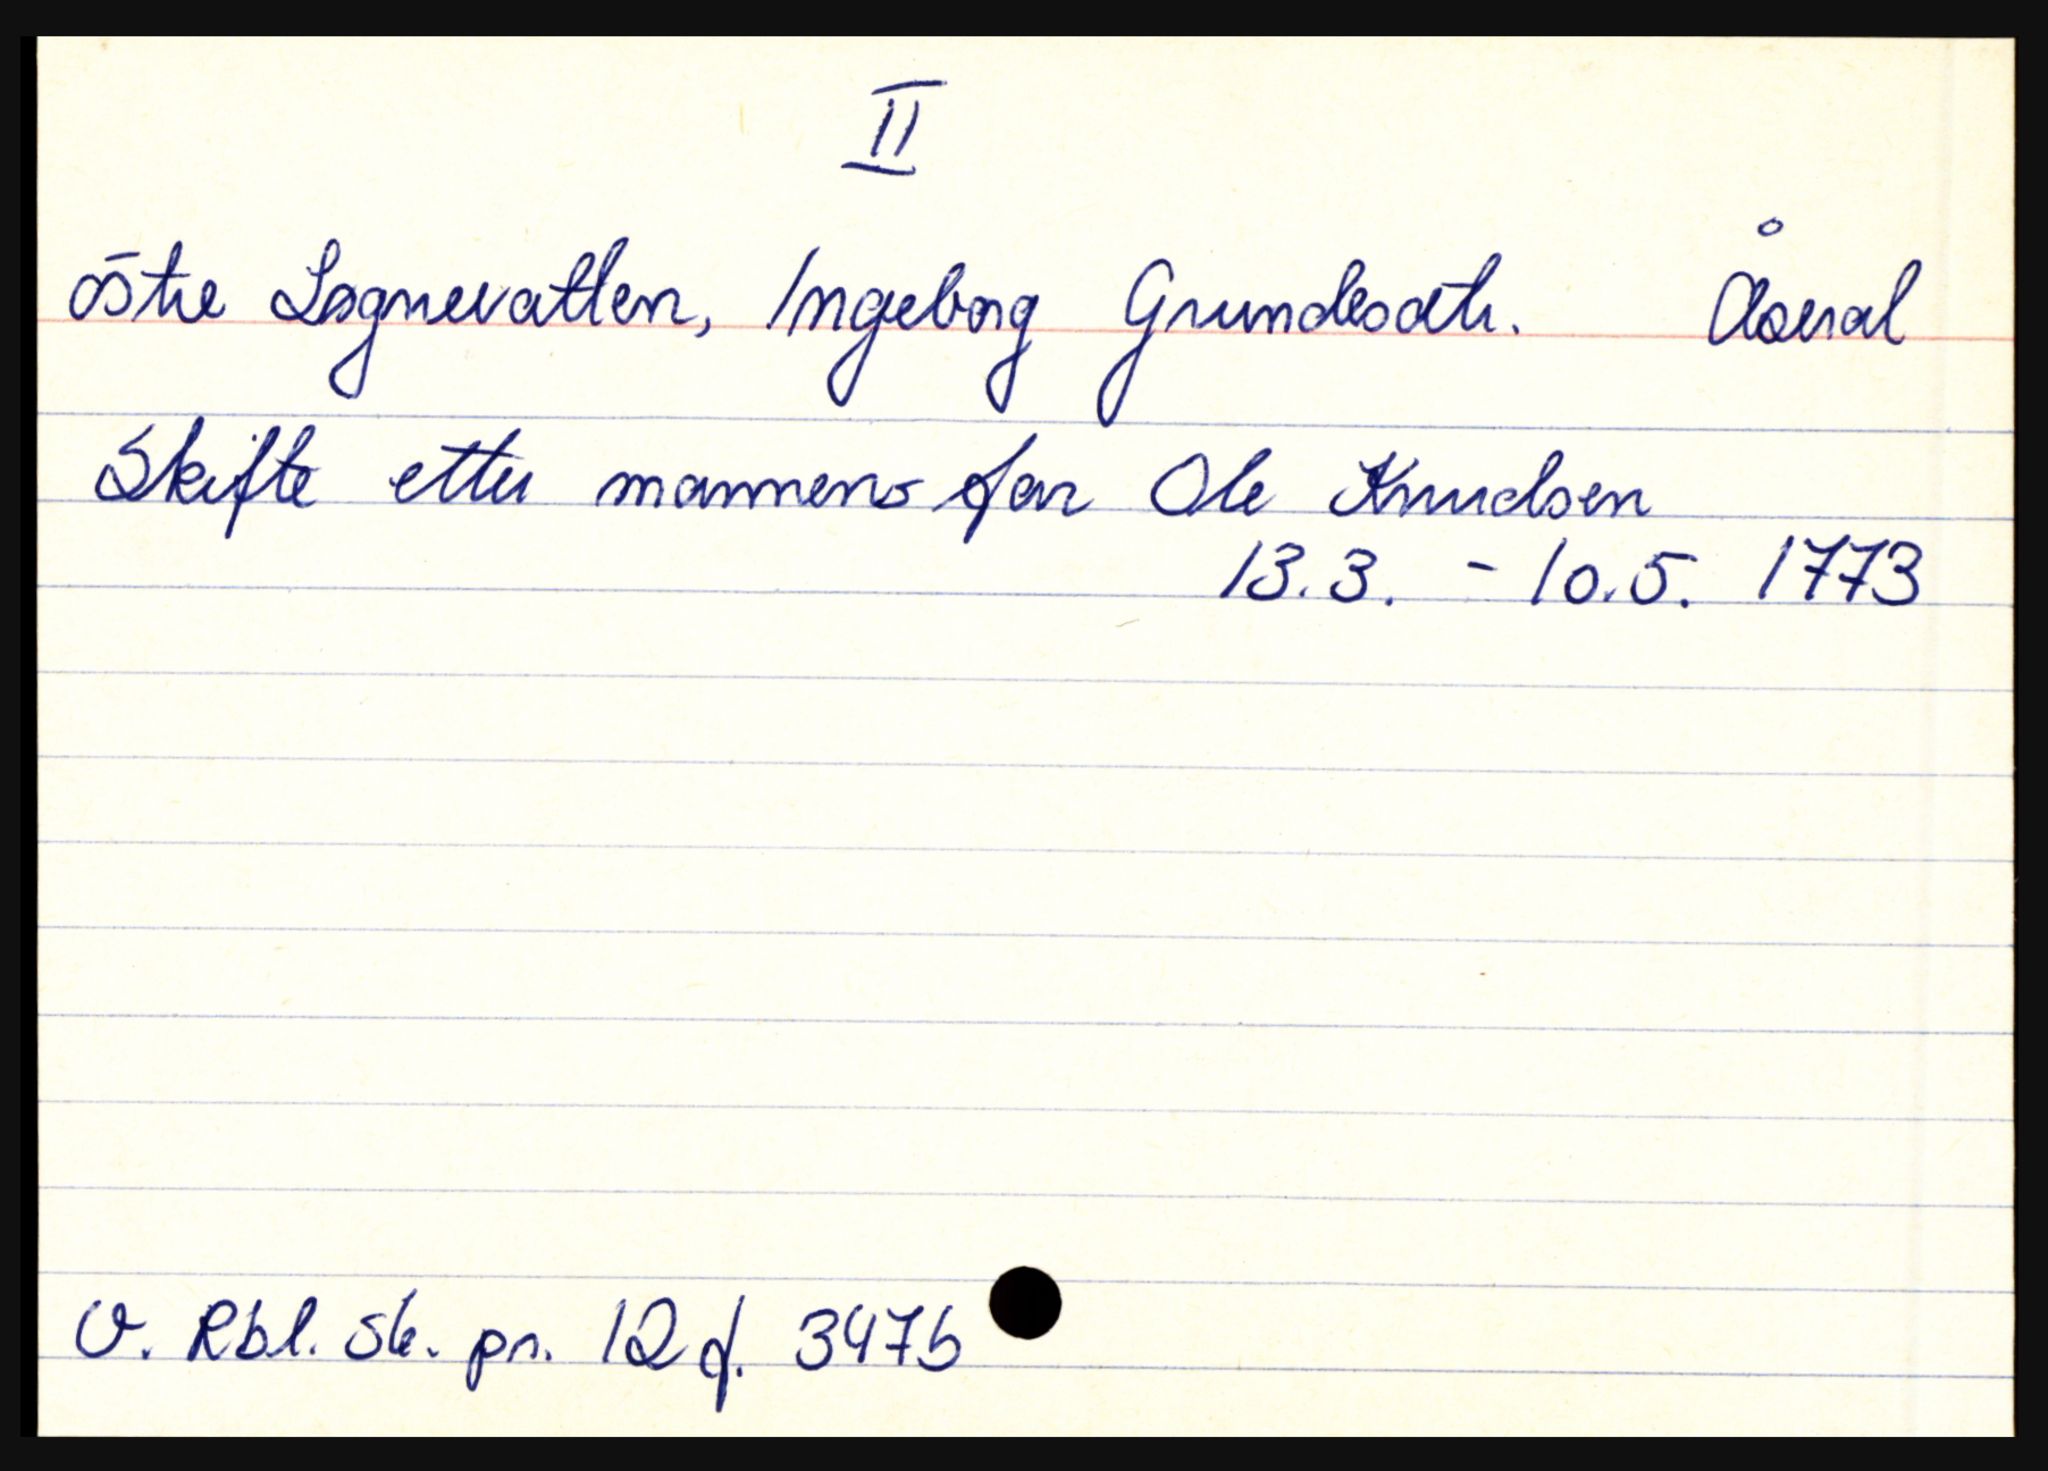 II
östre Løgnevatten, Ingeborg Grundesdtr. Åseral
Skifte etter mannens far Ole Knudsen
13.3. - 10.5. 1773
V. Rbl. sk. pr. 12 f. 347b